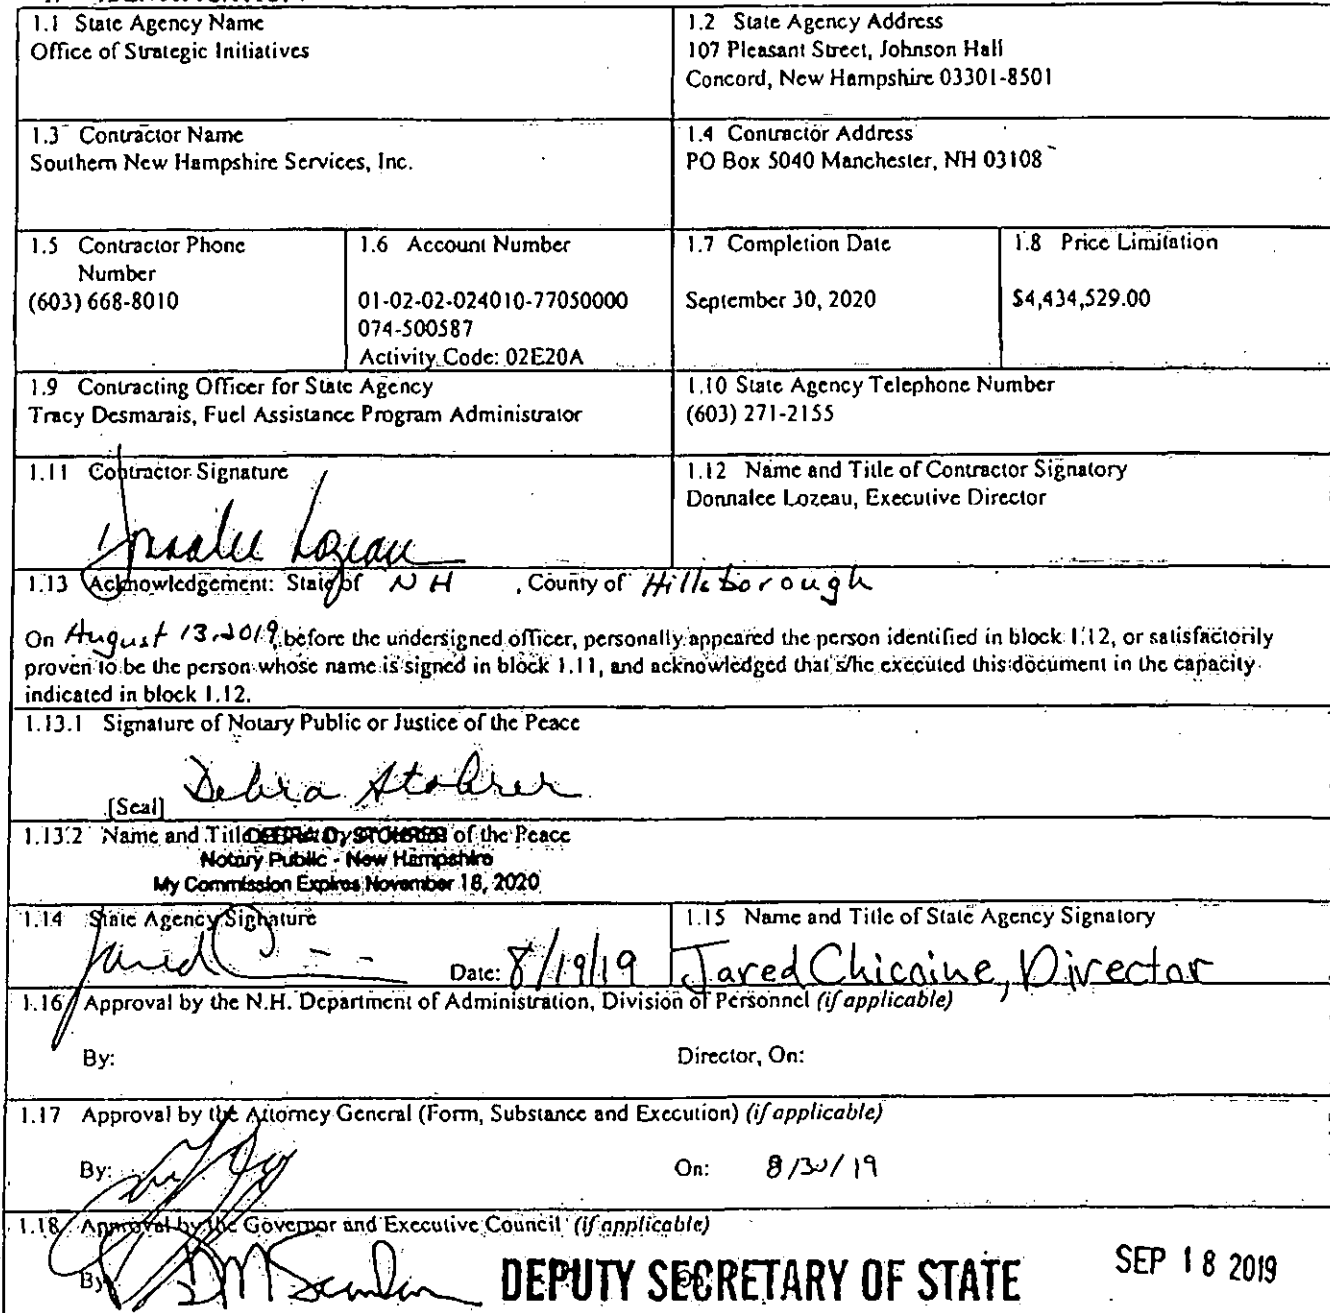 1.1 State Agency Name
Office of Strategic Initiatives
1.2 State Agency Address
107 Pleasant Street, Johnson Hall
Concord, New Hampshire 03301-8501
1.3 Contractor Name
Southern New Hampshire Services, Inc.
1.4 Contractor Address
PO Box 5040 Manchester, NH 03108
1.5 Contractor Phone
Number
(603) 668-8010
1.6 Account Number
01-02-02-024010-77050000
074-500587
Activity Code: 02E20A
1.7 Completion Date
September 30, 2020
1.8 Price Limitation
$4,434,529.00
1.9 Contracting Officer for State Agency
Tracy Desmarais, Fuel Assistance Program Administrator
1.10 State Agency Telephone Number
(603) 271-2155
1.11 Contractor Signature
Donnalee Lozeau
1.12 Name and Title of Contractor Signatory
Donnalee Lozeau, Executive Director
1.13 Acknowledgement: State of NH , County of Hillsborough
On August 13, 2019, before the undersigned officer, personally appeared the person identified in block 1.12, or satisfactorily
proven to be the person whose name is signed in block 1.11, and acknowledged that s/he executed this document in the capacity
indicated in block 1.12.
1.13.1 Signature of Notary Public or Justice of the Peace
Debra Stohrer
[Seal]
1.13.2 Name and Title of the Peace
DEBRA D. STOHRER
Notary Public - New Hampshire
My Commission Expires November 18, 2020
1.14 State Agency Signature
Jared Date: 8/19/19
1.15 Name and Title of State Agency Signatory
Jared Chicoine, Director
1.16 Approval by the N.H. Department of Administration, Division of Personnel (if applicable)
By: Director, On:
1.17 Approval by the Attorney General (Form, Substance and Execution) (if applicable)
By: On: 8/30/19
1.18 Approval by the Governor and Executive Council (if applicable)
By: DEPUTY SECRETARY OF STATE SEP 18 2019